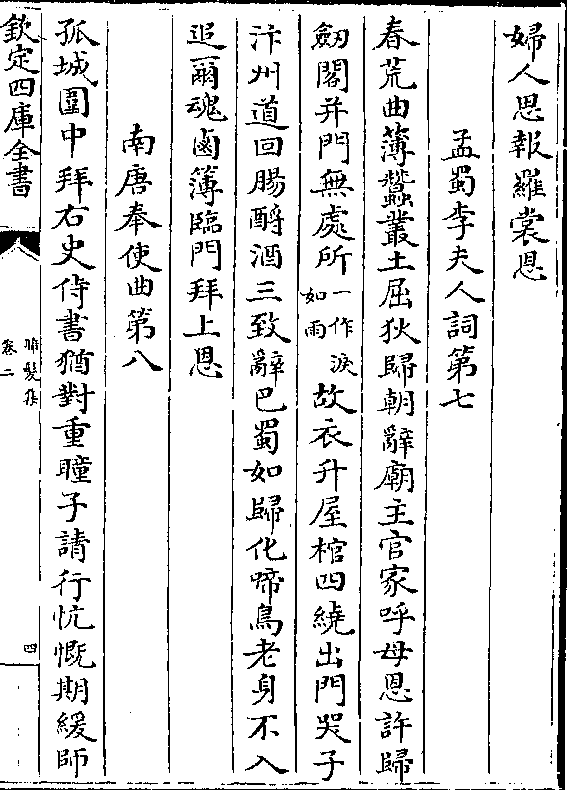 婦人思報羅裳恩
孟蜀李夫人詞第七
春荒曲薄蠶叢土屈狄歸朝辭廟主官家呼母恩許歸
劒閣并門無處所一作淚如雨故衣升屋棺四繞出門哭子
汴州道回腸酹酒三致辭巴蜀如歸化啼鳥老身不入
追爾魂鹵簿臨門拜上恩
南唐奉使曲第八
孤城圍中拜右史侍書猶對重瞳子請行忼慨期緩師
欽定四庫全書
晞髮集
卷二
四